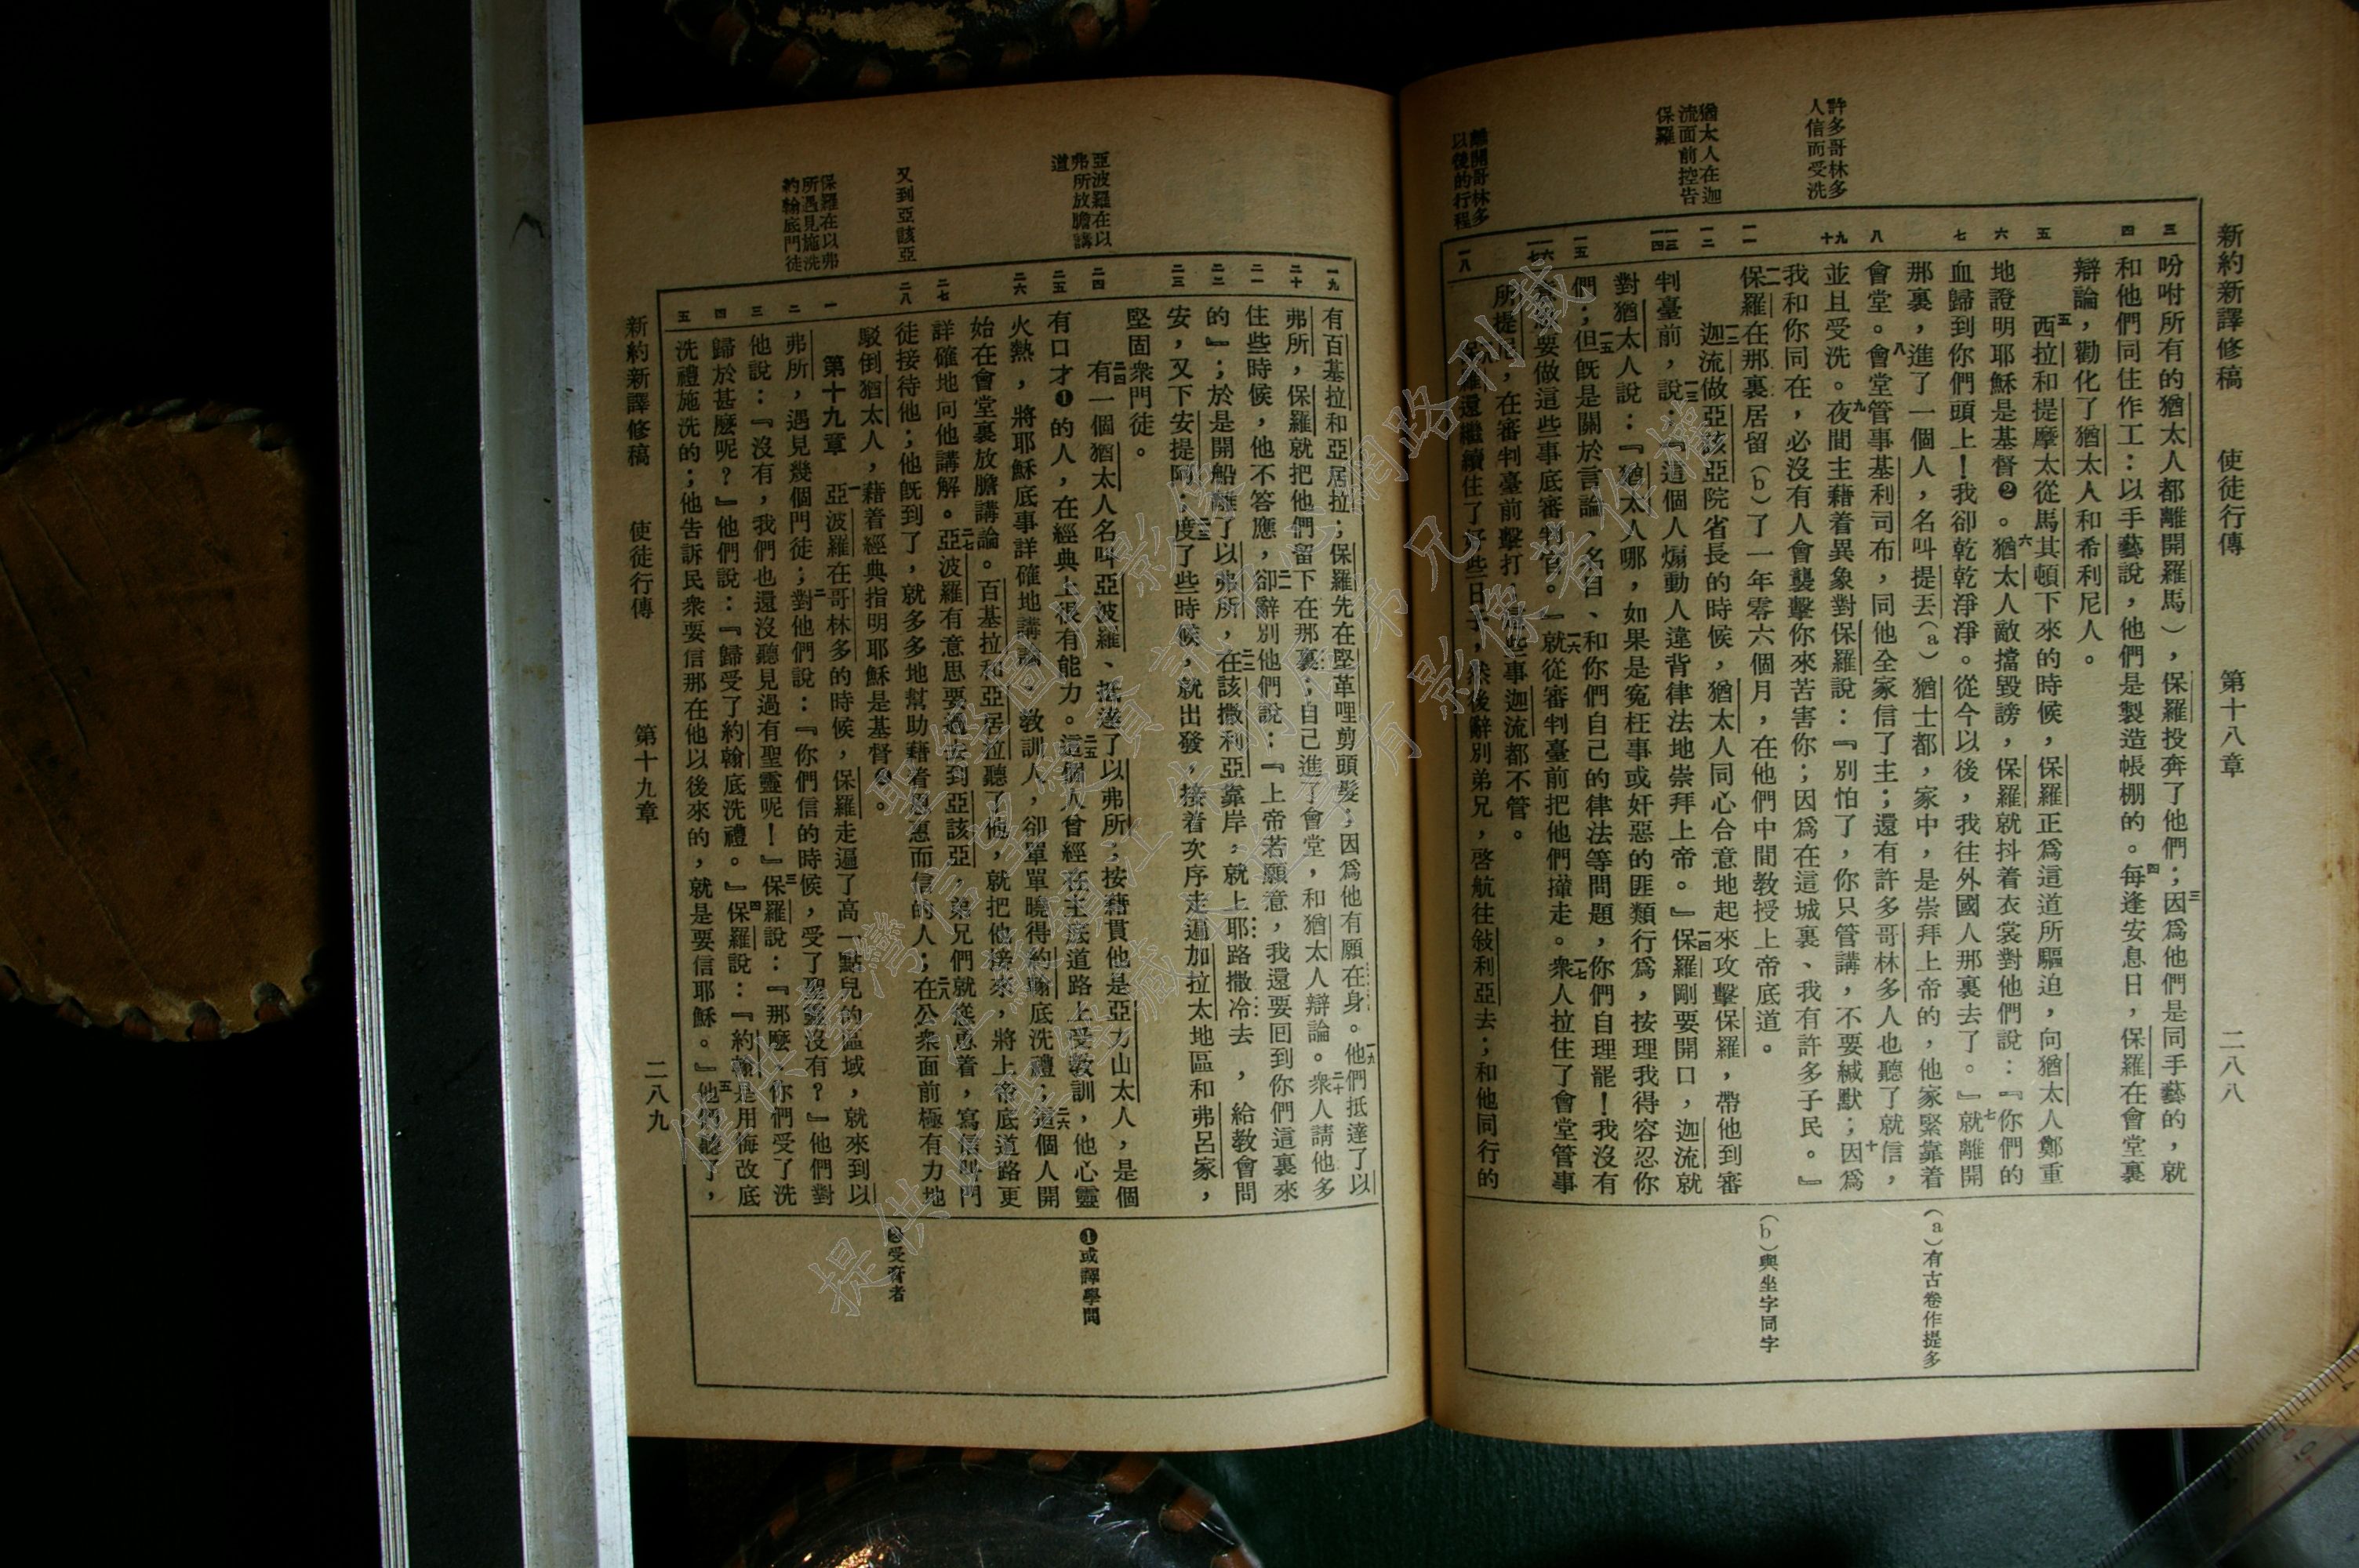 新約新譯修稿　使徒行傳　第十八章　二八八
許多哥林多
人信而受洗
猶太人在迦
流面前控告
保羅
離開哥林多
以後的行程
三
四
五
六
七
八
九
十
一一
一二
一三
一四
一五
一八
吩咐所有的猶太人都離開羅馬），保羅投奔了他們；三因爲他們是同手藝的，就
和他們同住作工：以手藝說，他們是製造帳棚的。四每逢安息日，保羅在會堂裏
辯論，勸化了猶太人和希利尼人。
五西拉和提摩太從馬其頓下來的時候，保羅正爲這道所驅迫，向猶太人鄭重
地證明耶穌是基督❷。六猶太人敵擋毀謗，保羅就抖着衣裳對他們說：『你們的
血歸到你們頭上！我卻乾乾淨淨。從今以後，我往外國人那裏去了。』七就離開
那裏，進了一個人，名叫提丟（a）猶士都，家中，是崇拜上帝的，他家緊靠着
會堂。八會堂管事基利司布，同他全家信了主；還有許多哥林多人也聽了就信，
並且受洗。九夜間主藉着異象對保羅說：『別怕了，你只管講，不要緘默；十因爲
我和你同在，必沒有人會襲擊你來苦害你；因爲在這城裏、我有許多子民。』
一一保羅在那裏居留（b）了一年零六個月，在他們中間教授上帝底道。
一二迦流做亞該亞院省長的時候，猶太人同心合意地起來攻擊保羅，帶他到審
判臺前，一三說：『這個人煽動人違背律法地崇拜上帝。』一四保羅剛要開口，迦流就
對猶太人說：『猶太人哪，如果是寃枉事或奸惡的匪類行爲，按理我得容忍你
們；一五但旣是關於言論、名目、和你們自己的律法等問題，你們自理罷！我沒有
要做這些事底審判官。』一六就從審判臺前把他們攆走。一七衆人拉住了會堂管事
所提尼，在審判臺前擊打，這些事迦流都不管。
保羅還繼續住了好些日子，然後辭別弟兄，啓航往敍利亞去；和他同行的
（a）有古卷作提多
（b）與坐字同字
亞波羅在以
弗所放膽講
道
又到亞該亞
保羅在以弗
所遇見施洗
約翰底門徒
一九
二十
二一
二二
二三
二四
二五
二六
二七
二八
一
二
三
四
五
有百基拉和亞居拉；保羅先在堅革哩剪頭髮；因爲他有願在身。一九他們抵達了以
弗所，保羅就把他們留下在那裏；自己進了會堂，和猶太人辯論。二十衆人請他多
住些時候，他不答應，二一卻辭別他們說：『上帝若願意，我還要囘到你們這裏來
的』；於是開船離了以弗所，二二在該撒利亞靠岸，就上耶路撒冷去，給教會問
安，又下安提阿；二三度了些時候，就出發，接着次序走遍加拉太地區和弗呂家，
堅固衆門徒。
二四有一個猶太人名叫亞波羅、抵達了以弗所；按籍貫他是亞力山太人，是個
有口才❶的人，在經典上很有能力。二五這個人曾經在主底道路上受教訓，他心靈
火熱，將耶穌底事詳確地講論、教訓人，卻單單曉得約翰底洗禮；二六這個人開
始在會堂裏放膽講論。百基拉和亞居拉聽了他，就把他接來，將上帝底道路更
詳確地向他講解。二七亞波羅有意思要過去到亞該亞，弟兄們就慫恿着，寫信叫門
徒接待他；他旣到了，就多多地幫助藉着恩惠而信的人；二八在公衆面前極有力地
駁倒猶太人，藉着經典指明耶穌是基督❷。
第十九章　一亞波羅在哥林多的時候，保羅走遍了高一點兒的區域，就來到以
弗所，遇見幾個門徒；二對他們說：『你們信的時候，受了聖靈沒有？』他們對
他說：『沒有，我們也還沒聽見過有聖靈呢！』三保羅說：『那麼、你們受了洗
歸於甚麼呢？』他們說：『歸受了約翰底洗禮。』四保羅說：『約翰是用悔改底
洗禮施洗的；他告訴民衆要信那在他以後來的，就是要信耶穌。』五他們聽了，
❶或譯學問
❷受膏者
新約新譯修稿　使徒行傳　第十九章　二八九